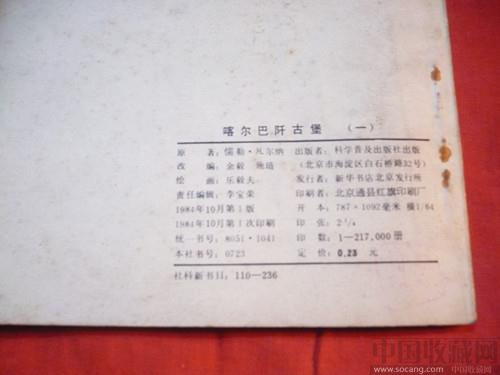 喀尔巴阡古堡 （一）
原 著：儒勒·凡尔纳 出版者：科学普及出版社出版
改 编：金毅 施瑶 （北京市海淀区白石桥路32号）
绘 画：乐毅夫 发行者：新华书店北京发行所
责任编辑：李宝荣 印刷者：北京通县红旗印刷厂
1984年10月第1版 开 本：787×1092毫米 横1/64
1984年10月第1次印刷 印 张：2¼
统一书号：8051·1041 印 数：1—217,000 册
本社书号：0723 定 价：0.23 元
社科新书目：110—236
中国收藏网
www.socang.com 中国收藏网